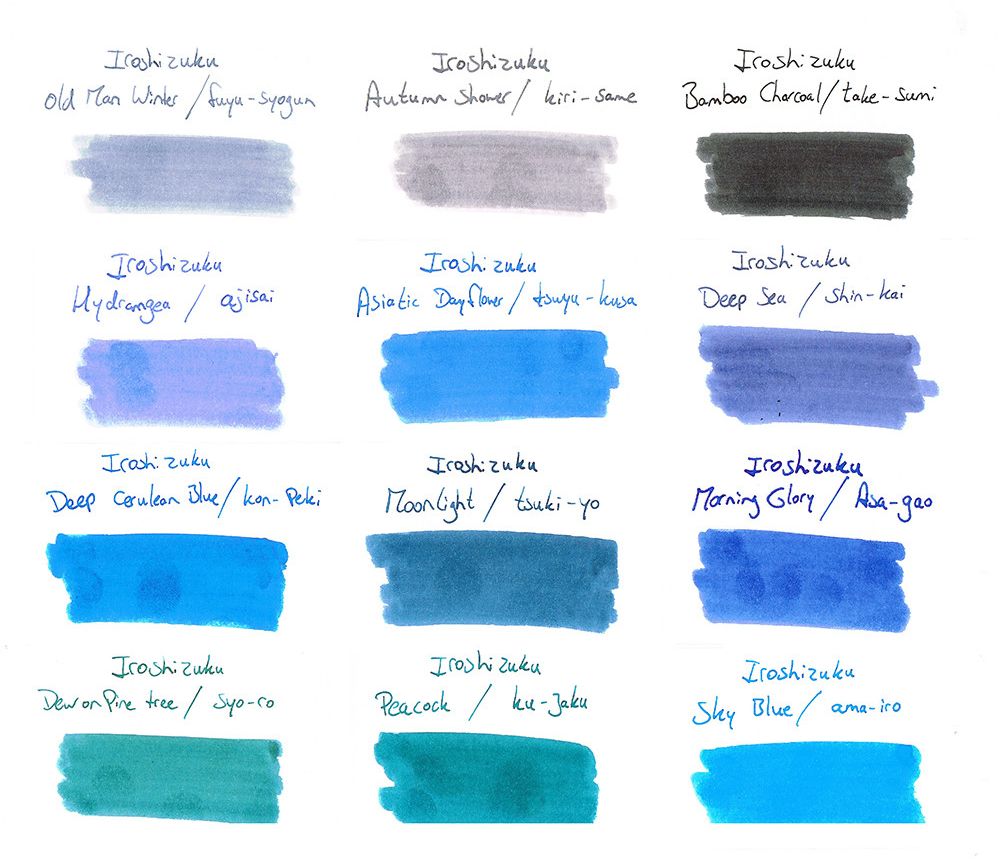 Iroshizuku
Old Man Winter / fuyu-syogun
Iroshizuku
Autumn Shower / kiri-same
Iroshizuku
Bamboo Charcoal / take-sumi
Iroshizuku
Hydrangea / ajisai
Iroshizuku
Asiatic Dayflower / tsuyu-kusa
Iroshizuku
Deep Sea / shin-kai
Iroshizuku
Deep Cerulean Blue / kon-Peki
Iroshizuku
Moonlight / tsuki-yo
Iroshizuku
Morning Glory / Asa-gao
Iroshizuku
Dew on Pine tree / syo-ro
Iroshizuku
Peacock / ku-jaku
Iroshizuku
Sky Blue / ama-iro